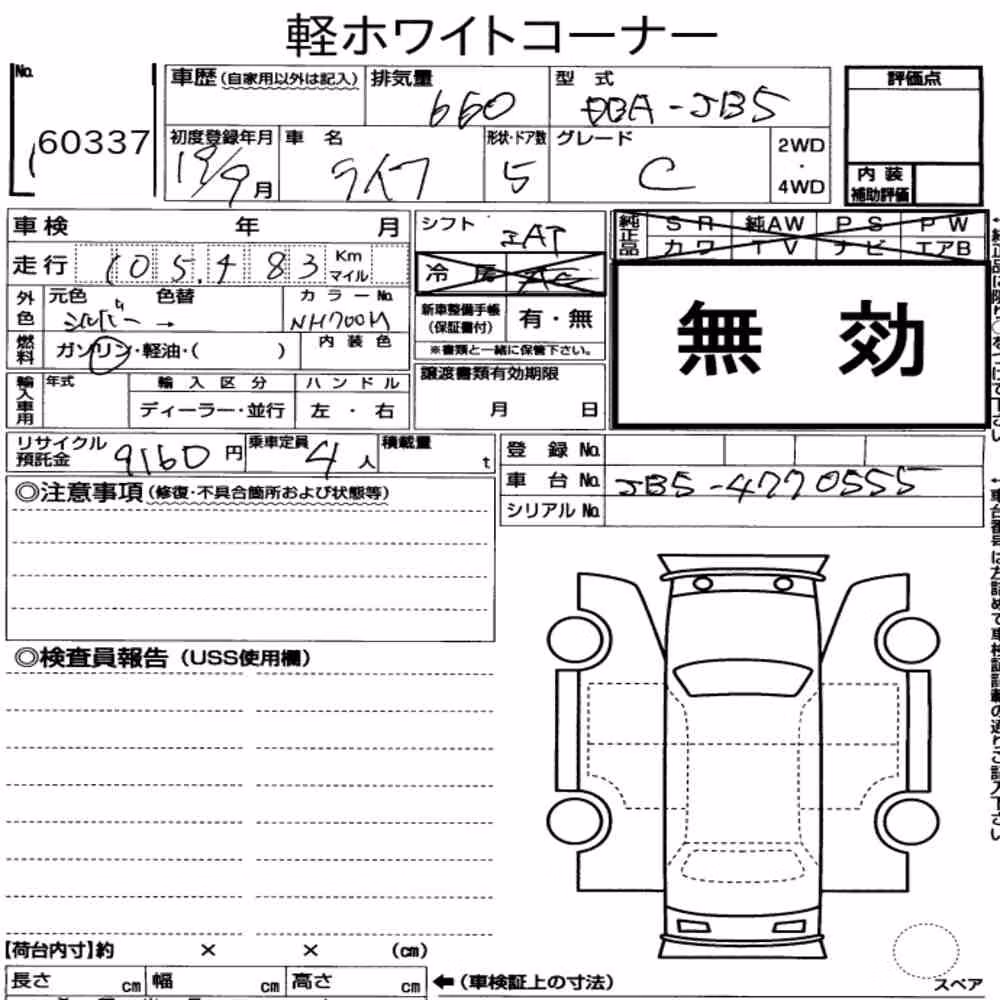 軽ホワイトコーナー
No. 60337
車歴(自家用以外は記入) 排気量 660 型式 DBA-JB5
評価点
初度登録年月 19/9月 車名 ライフ 形状・ドア数 5 グレード C 2WD・4WD
内装補助評価
車検 年 月
シフト IAT
純正品 SR 純AW PS PW
カワ TV ナビ エアB
走行 105,483 Km マイル
冷房 AC
外色 元色 シルバー → 色替 カラーNo. NH700M
新車整備手帳(保証書付) 有・無
※書類と一緒に保管下さい。
無効
燃料 ガソリン・軽油・( ) 内装色
輸入車用 年式 輸入区分 ハンドル
ディーラー・並行 左・右
譲渡書類有効期限
月 日
リサイクル預託金 9160円 乗車定員 4人 積載量 t
登録No.
車台No. JB5-4770555
シリアルNo.
◎注意事項(修復・不具合箇所および状態等)
◎検査員報告(USS使用欄)
【荷台内寸】約 × × (cm)
長さ cm 幅 cm 高さ cm ←(車検証上の寸法)
スペア